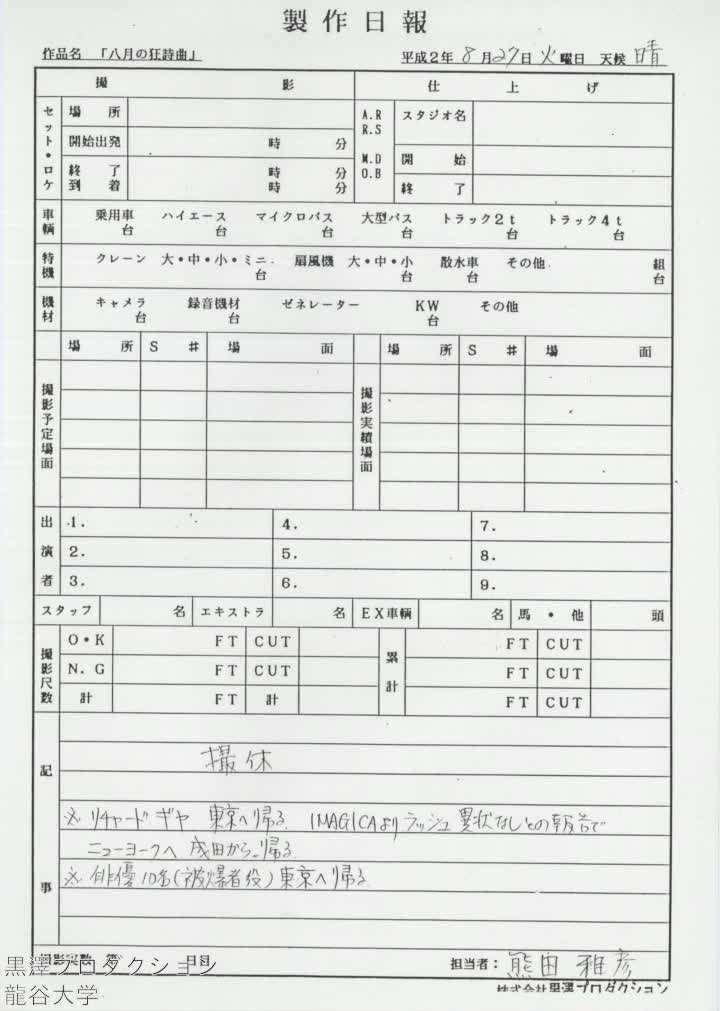 製作日報
作品名 「八月の狂詩曲」 平成2年 8月27日 火曜日 天候 晴
撮影 仕上げ
セット・ロケ 場所 A.R R.S M.D O.B スタジオ名
開始出発 時 分 開始
終了 時 分 終了
到着 時 分
車輌 乗用車 台 ハイエース 台 マイクロバス 台 大型バス 台 トラック2t 台 トラック4t 台
特機 クレーン 大・中・小・ミニ 台 扇風機 大・中・小 台 散水車 台 その他 組 台
機材 キャメラ 台 録音機材 台 ゼネレーター KW 台 その他
場所 S# 場面 場所 S# 場面
撮影予定場面 撮影実績場面
出演者 1. 4. 7.
2. 5. 8.
3. 6. 9.
スタッフ 名 エキストラ 名 EX車輌 名 馬・他 頭
撮影尺数 O・K FT CUT 累計 FT CUT
N.G FT CUT FT CUT
計 FT 計 FT CUT
記事
撮休
※ リチャード ギヤ 東京へ帰る. IMAGICAよりラッシュ異状なしとの報告で
ニューヨークへ 成田から帰る
※ 俳優10名(被爆者役)東京へ帰る
撮影実数 第 日目 担当者: 熊田 雅彦
株式会社黒澤プロダクション
黒澤プロダクション
龍谷大学